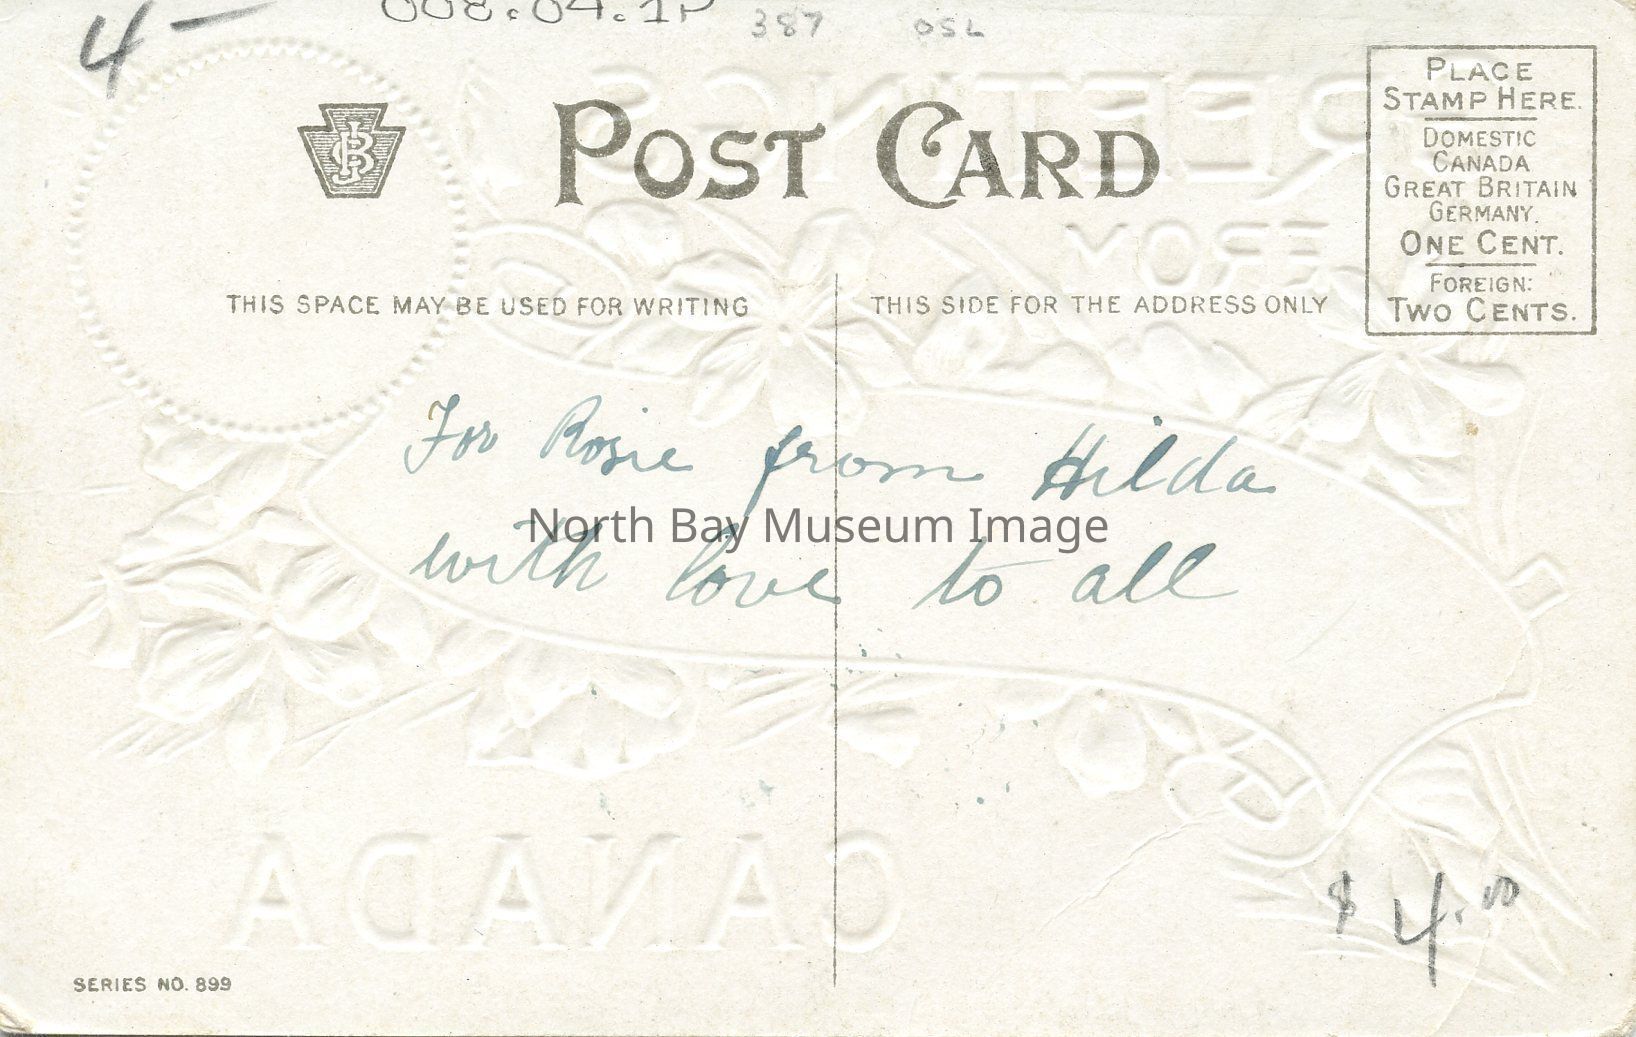 4 —
008.04.1P
387 OSL
POST CARD
PLACE
STAMP HERE.
DOMESTIC
CANADA
GREAT BRITAIN
GERMANY.
ONE CENT.
FOREIGN:
TWO CENTS.
GREETINGS
FROM
THIS SPACE MAY BE USED FOR WRITING
THIS SIDE FOR THE ADDRESS ONLY
For Rosie from Hilda
North Bay Museum Image
with love to all
CANADA
$4.00
SERIES NO. 899